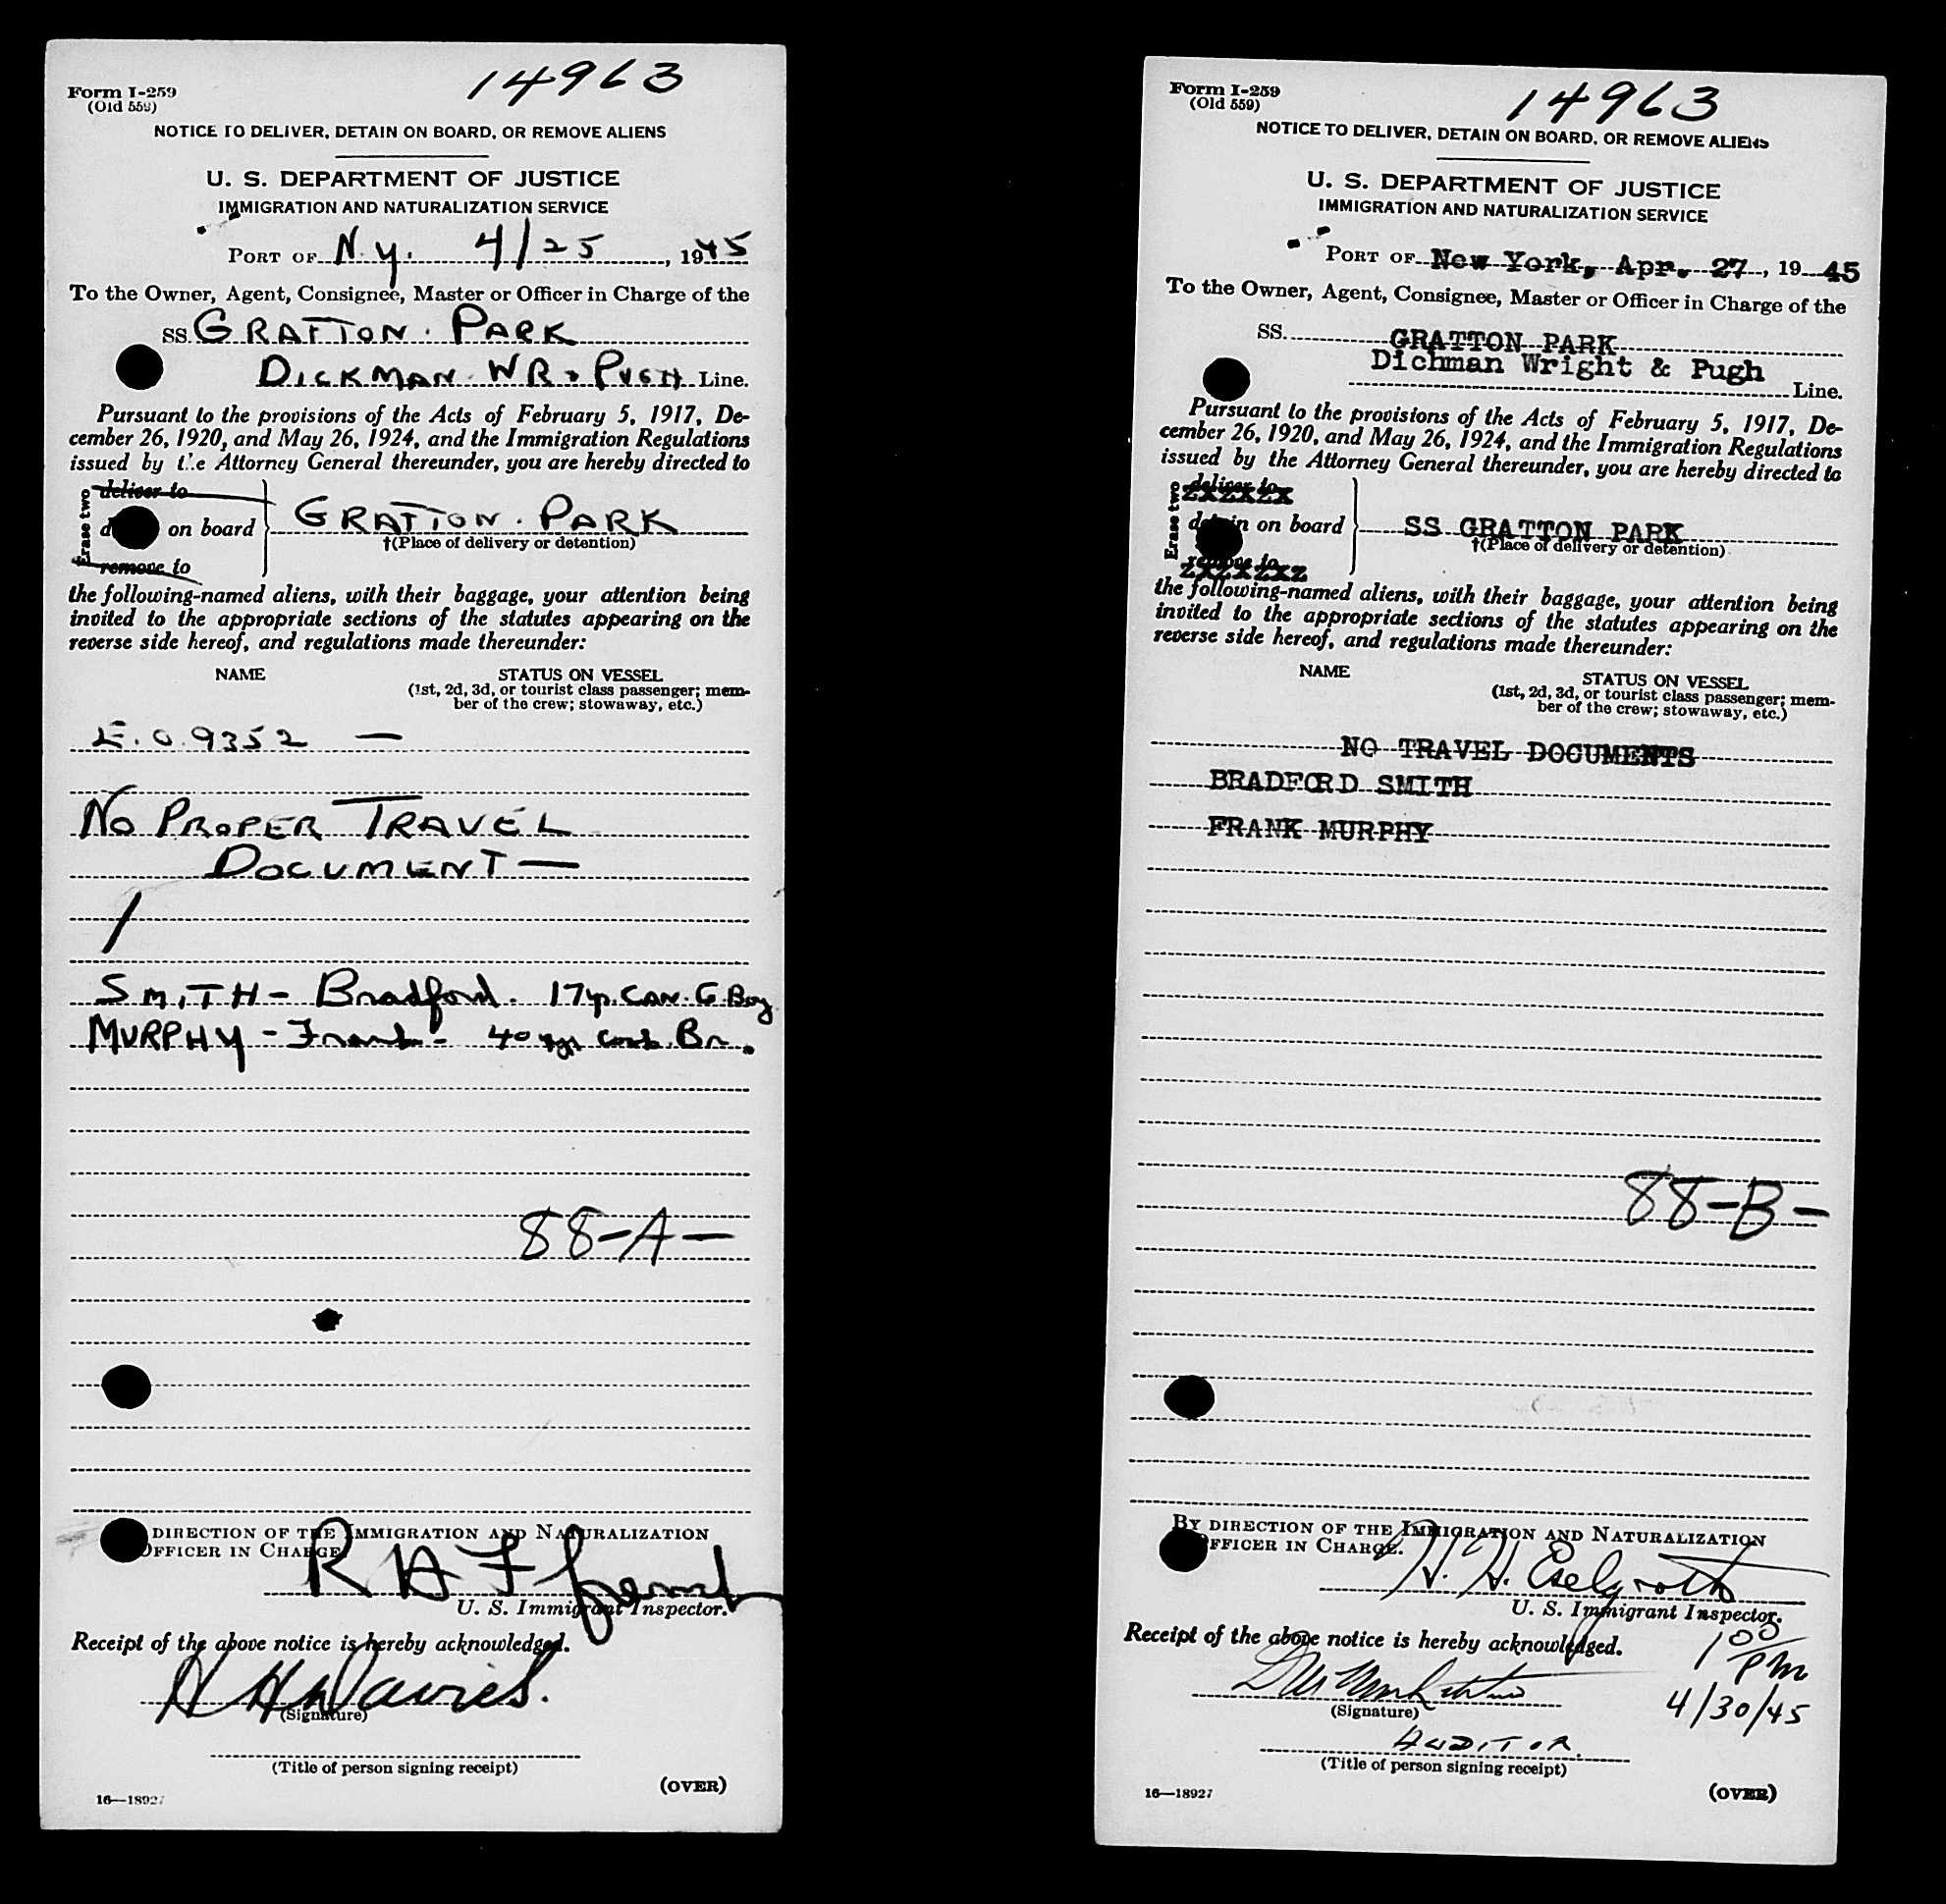 14963
Form I-259
(Old 559)
NOTICE TO DELIVER, DETAIN ON BOARD, OR REMOVE ALIENS
U. S. DEPARTMENT OF JUSTICE
IMMIGRATION AND NATURALIZATION SERVICE
PORT OF N.Y. 4/25, 1945
To the Owner, Agent, Consignee, Master or Officer in Charge of the
SS. GRATTON. PARK
DICKMAN WR & PUGH Line.
Pursuant to the provisions of the Acts of February 5, 1917, De-
cember 26, 1920, and May 26, 1924, and the Immigration Regulations
issued by the Attorney General thereunder, you are hereby directed to
Erase two
deliver to
on board GRATTON. PARK
†(Place of delivery or detention)
remove to
the following-named aliens, with their baggage, your attention being
invited to the appropriate sections of the statutes appearing on the
reverse side hereof, and regulations made thereunder:
NAME STATUS ON VESSEL
(1st, 2d, 3d, or tourist class passenger; mem-
ber of the crew; stowaway, etc.)
E.O. 9352 —
NO PROPER TRAVEL
DOCUMENT —
/
SMITH - Bradford. 17 yr. CAN. G. Boy
MURPHY - Frank - 40 yrs Br.
88-A-
DIRECTION OF THE IMMIGRATION AND NATURALIZATION
OFFICER IN CHARGE
R H F
U. S. Immigrant Inspector.
Receipt of the above notice is hereby acknowledged.
Davies.
(Signature)
(Title of person signing receipt)
(OVER)
16—18927
14963
Form I-259
(Old 559)
NOTICE TO DELIVER, DETAIN ON BOARD, OR REMOVE ALIENS
U. S. DEPARTMENT OF JUSTICE
IMMIGRATION AND NATURALIZATION SERVICE
PORT OF New York, Apr. 27, 19 45
To the Owner, Agent, Consignee, Master or Officer in Charge of the
SS. GRATTON PARK
Dichman Wright & Pugh
Line.
Pursuant to the provisions of the Acts of February 5, 1917, De-
cember 26, 1920, and May 26, 1924, and the Immigration Regulations
issued by the Attorney General thereunder, you are hereby directed to
Erase two
deliver to
detain on board SS GRATTON PARK
†(Place of delivery or detention)
remove to
the following-named aliens, with their baggage, your attention being
invited to the appropriate sections of the statutes appearing on the
reverse side hereof, and regulations made thereunder:
NAME STATUS ON VESSEL
(1st, 2d, 3d, or tourist class passenger; mem-
ber of the crew; stowaway, etc.)
NO TRAVEL DOCUMENTS
BRADFORD SMITH
FRANK MURPHY
88-B-
BY DIRECTION OF THE IMMIGRATION AND NATURALIZATION
OFFICER IN CHARGE.
H. H. Eselgroth
U. S. Immigrant Inspector.
Receipt of the above notice is hereby acknowledged.
1 00 PM
4/30/45
(Signature)
AUDITOR.
(Title of person signing receipt)
(OVER)
16—18927